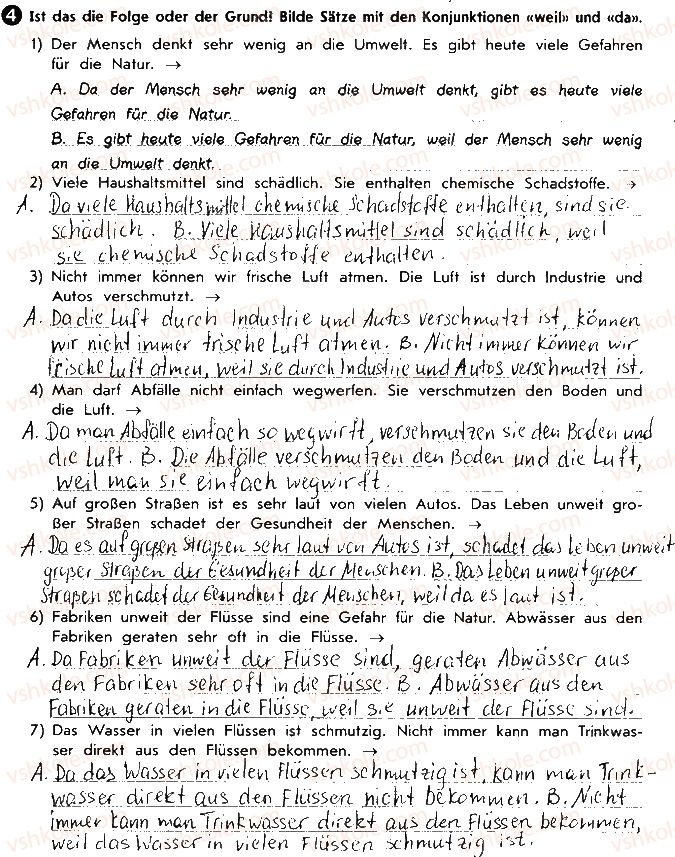 4 Ist das die Folge oder der Grund? Bilde Sätze mit den Konjunktionen «weil» und «da».
1) Der Mensch denkt sehr wenig an die Umwelt. Es gibt heute viele Gefahren
für die Natur. →
A. Da der Mensch sehr wenig an die Umwelt denkt, gibt es heute viele
Gefahren für die Natur.
B. Es gibt heute viele Gefahren für die Natur, weil der Mensch sehr wenig
an die Umwelt denkt.
2) Viele Haushaltsmittel sind schädlich. Sie enthalten chemische Schadstoffe. →
A. Da viele Haushaltsmittel chemische Schadstoffe enthalten, sind sie
schädlich. B. Viele Haushaltsmittel sind schädlich, weil
sie chemische Schadstoffe enthalten.
3) Nicht immer können wir frische Luft atmen. Die Luft ist durch Industrie und
Autos verschmutzt. →
A. Da die Luft durch Industrie und Autos verschmutzt ist, können
wir nicht immer frische Luft atmen. B. Nicht immer können wir
frische Luft atmen, weil sie durch Industrie und Autos verschmutzt ist.
4) Man darf Abfälle nicht einfach wegwerfen. Sie verschmutzen den Boden und
die Luft. →
A. Da man Abfälle einfach so wegwirft, verschmutzen sie den Boden und
die Luft. B. Die Abfälle verschmutzen den Boden und die Luft,
weil man sie einfach wegwirft.
5) Auf großen Straßen ist es sehr laut von vielen Autos. Das Leben unweit gro-
ßer Straßen schadet der Gesundheit der Menschen. →
A. Da es auf großen Straßen sehr laut von Autos ist, schadet das Leben unweit
großer Straßen der Gesundheit der Menschen. B. Das Leben unweit großer
Straßen schadet der Gesundheit der Menschen, weil da es laut ist.
6) Fabriken unweit der Flüsse sind eine Gefahr für die Natur. Abwässer aus den
Fabriken geraten sehr oft in die Flüsse. →
A. Da Fabriken unweit der Flüsse sind, geraten Abwässer aus
den Fabriken sehr oft in die Flüsse. B. Abwässer aus den
Fabriken geraten in die Flüsse, weil sie unweit der Flüsse sind.
7) Das Wasser in vielen Flüssen ist schmutzig. Nicht immer kann man Trinkwas-
ser direkt aus den Flüssen bekommen. →
A. Da das Wasser in vielen Flüssen schmutzig ist, kann man Trink-
wasser direkt aus den Flüssen nicht bekommen. B. Nicht
immer kann man Trinkwasser direkt aus den Flüssen bekommen,
weil das Wasser in vielen Flüssen schmutzig ist.